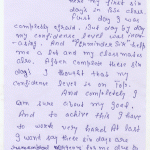 my first six
days in this class.
First day I was
completely afraid. But day by day
my confidence level was incre-
asing. And "REMINDER SIX" help
me a lot and my classmates
also. After complete these six
days I thought that my
confidence level is on Top.
And completely I
am sure about my goal.
And to achive this I have
to work very hard. At last
I want say these six days are
for my day to